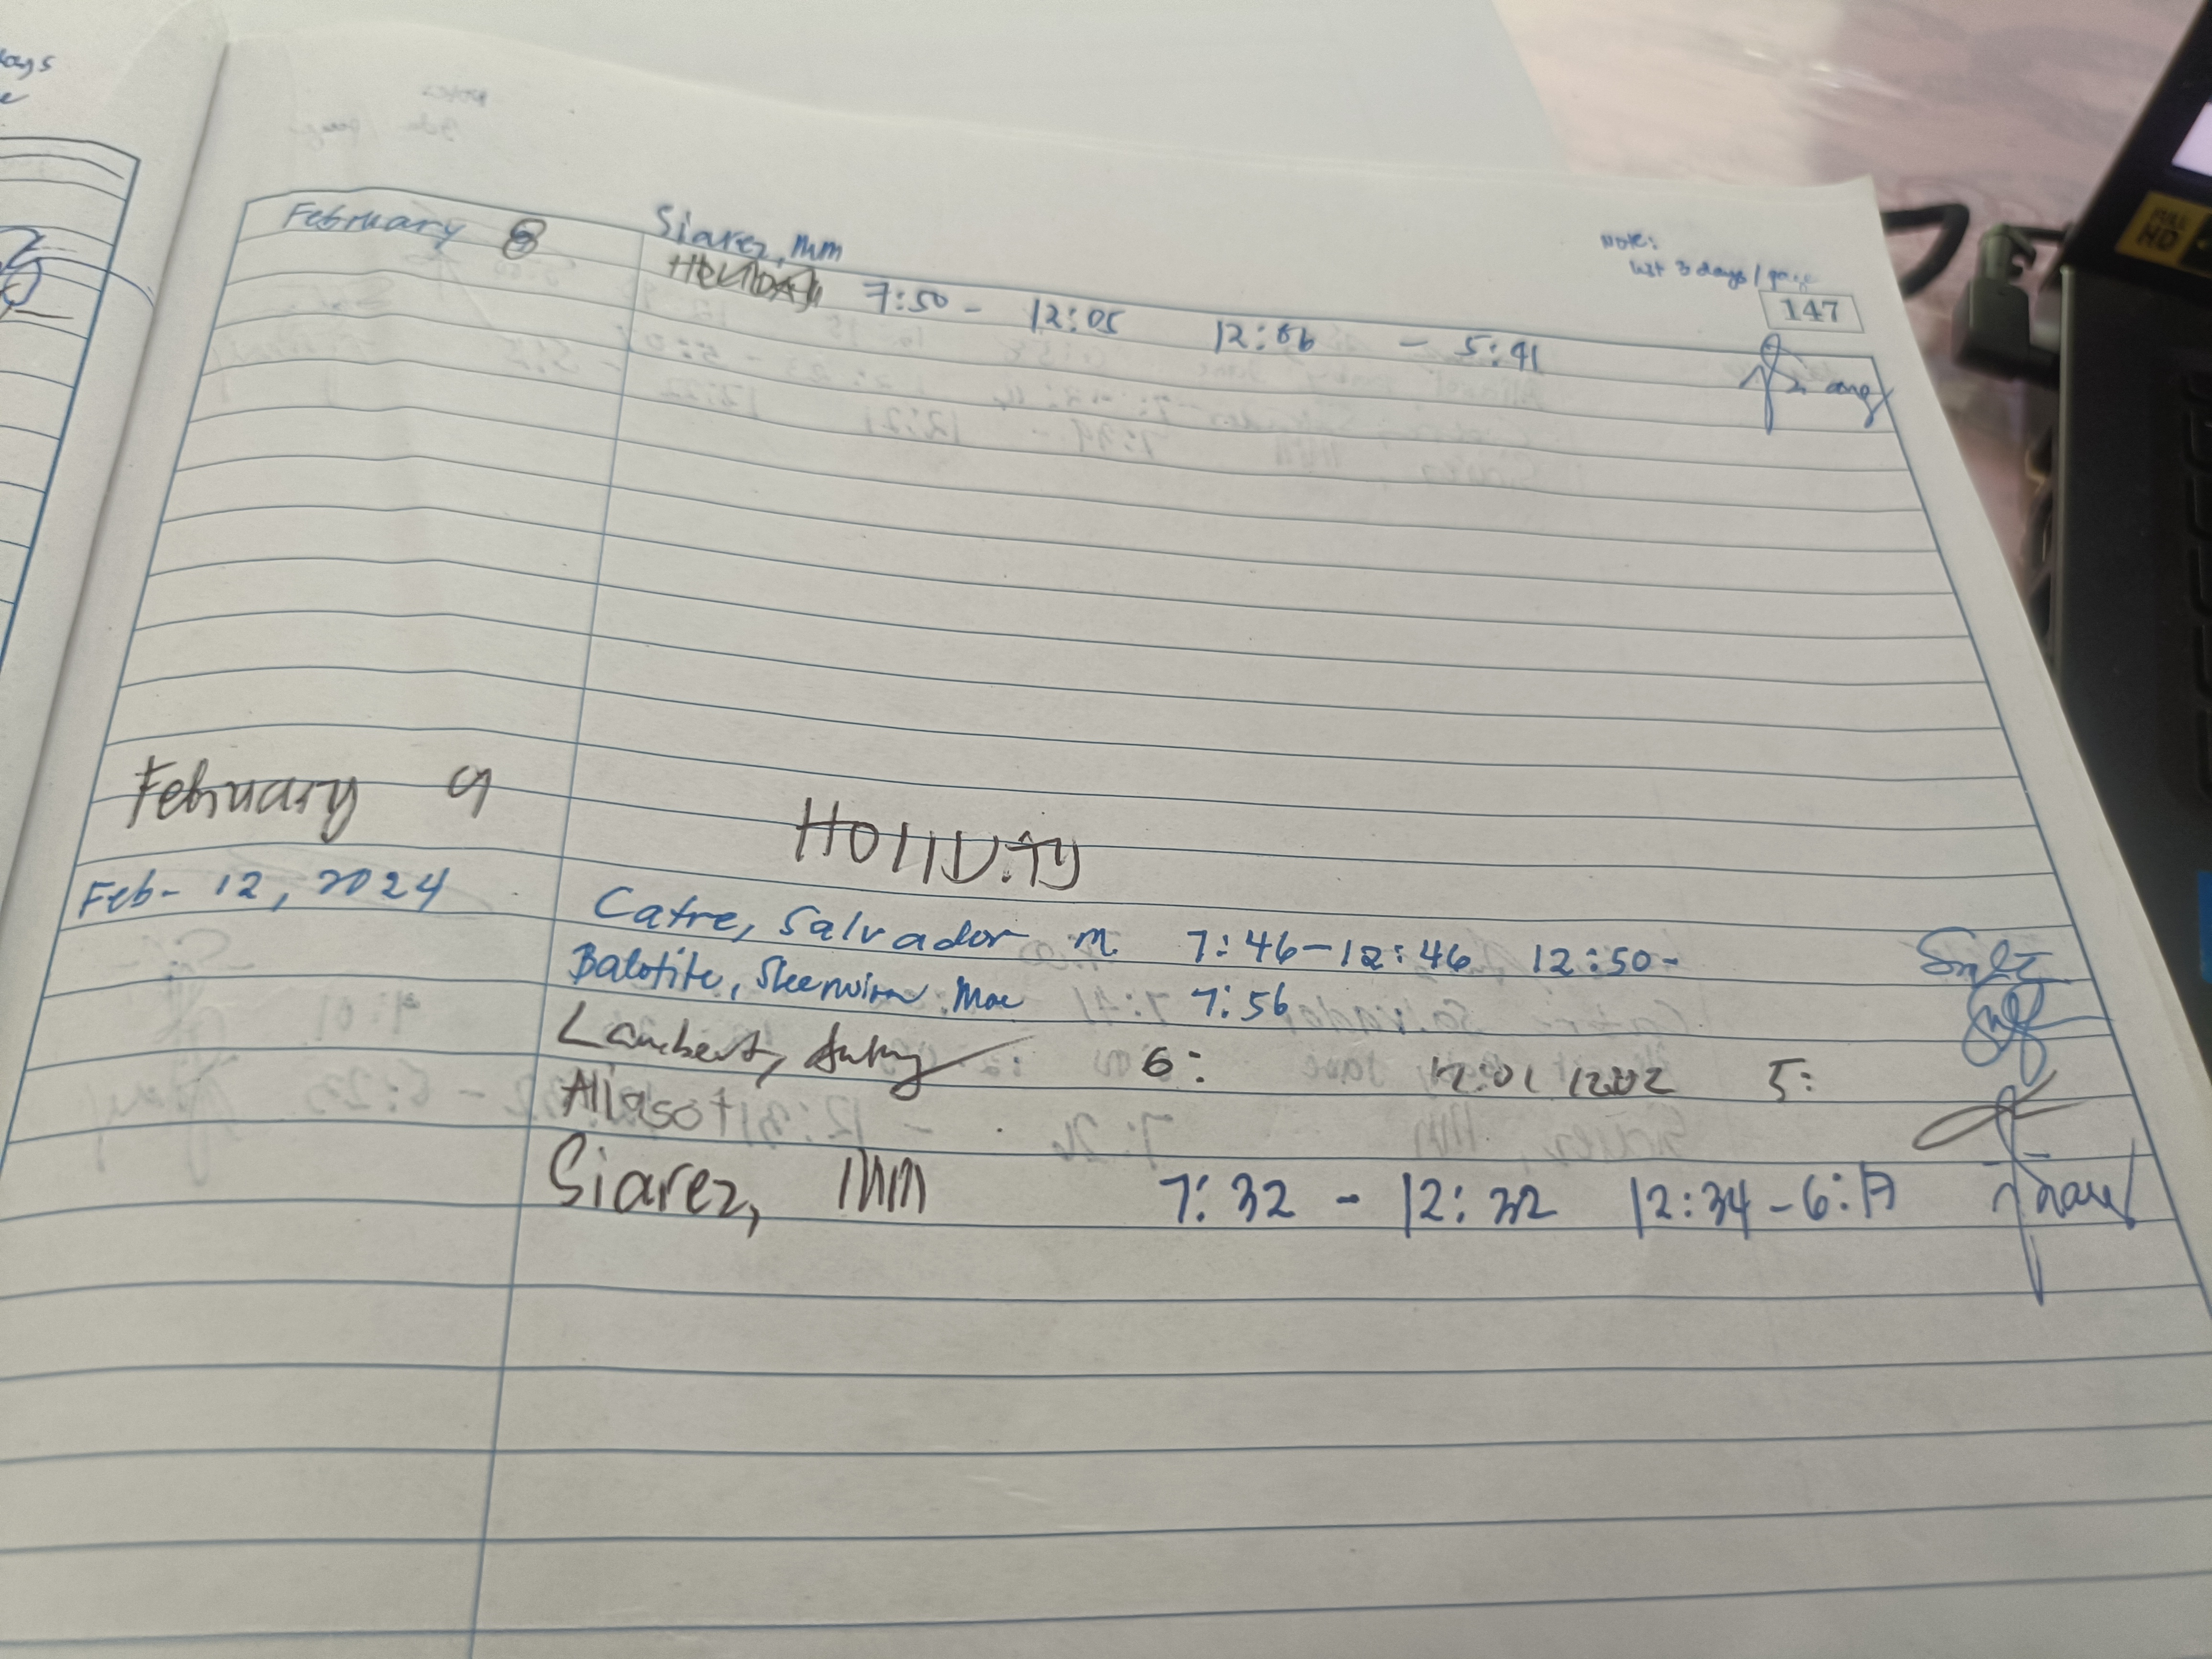 Note:
last 3 days / page
147
February 8 Siarez, MM
HOLIDAY 7:50 - 12:05 12:06 - 5:41
February 9 HOLIDAY
Feb- 12, 2024 Catre, Salvador M. 7:46-12:46 12:50-
Balotite, Sheerwinn Mae 7:56
Lambert, 6: 12:01 12:02 5:
Aliasot
Siarez, MM 7:32 - 12:32 12:34-6:17